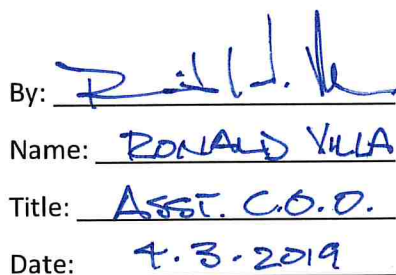 By:
Name: RONALD VILLA
Title: ASST. C.O.O.
Date: 4.3.2019